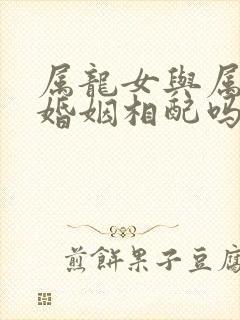 属龍女與属
婚姻相配吗
煎餅果子豆腐